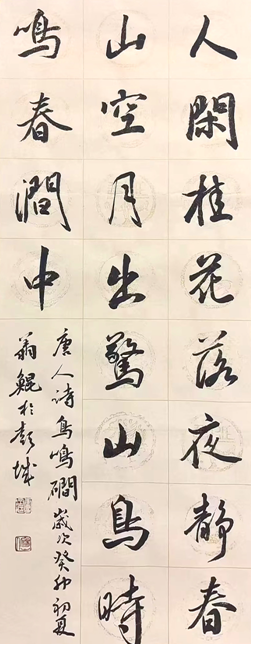 人閑桂花落夜靜春
山空月出驚山鳥時
鳴春澗中
唐人詩鳥鳴磵歲次癸卯初夏
翁鯤於彭城